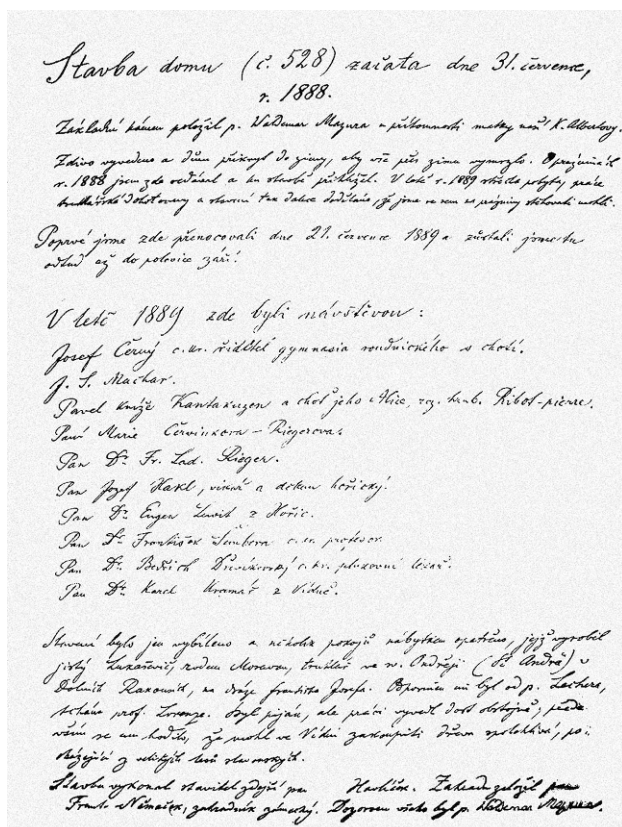 Stavba domu (č. 528) začata dne 31. července,
r. 1888.
Základní kámen položil p. Waldemar Mazura u přítomnosti matky naší K. Albertovy.
Zdivo vyvedeno a dům přikryt do zimy, aby vše přes zimu vymrzlo. O prázdninách
r. 1888 jsem zde a ku stavbě přihlížel. V létě r. 1889 práce
truhlářské dohotoveny a stavení tak dalece doděláno, že jsme se sem na prázdniny stěhovati mohli.
Poprvé jsme zde přenocovali dne 21. července 1889 a zůstali jsme tu
odtud až do polovice září.
V letě 1889 zde byli návštěvou:
Josef Černý c. kr. ředitel gymnasia roudnického s chotí.
J. S. Machar.
Pavel kníže Kantakuzen a choť jeho Alice, roz. hrab. Ribot-pierre.
Paní Marie Červinkova-Riegerova.
Pan Dr. Fr. Lad. Rieger.
Pan Josef Hakl, vikář a děkan hořický.
Pan Dr. Eugen z Hořic.
Pan Dr. František Šembera c. kr. profesor.
Pan Dr. Bedřich c. kr. plukovní lékař.
Pan Dr. Karel Kramář z Vídně.
Stavení bylo jen vybíleno a několik pokojů nábytkem opatřeno, jejž vyrobil
jistý rodem Moravan, truhlář ve sv. Ondřeji (St. Andrä) v
Dolních Rakousích, na dráze Františka Josefa. mi byl od p. Lachera,
prof. Lorenze. Byl piják, ale práci vyvedl dost obstojně;
se mu hodilo, že mohl ve Vídni zakoupiti dřevo spolehlivé, po-
cházející z velikých
Stavbu vykonal stavitel zdejší pan Havlíček. Zahradu založil pan
Frant. Němeček, zahradník zámecký. Dozorcem všeho byl p. Waldemar Mazura.